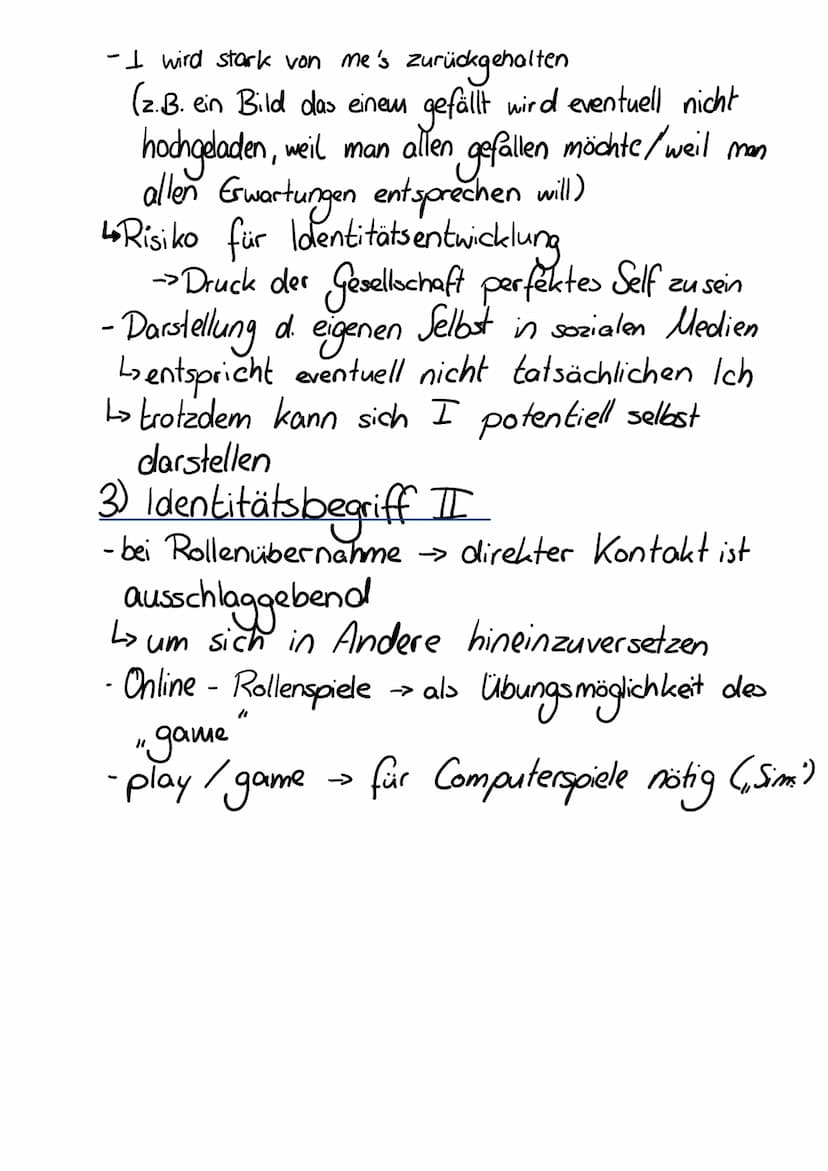 - I wird stark von me's zurückgehalten
(z.B. ein Bild das einem gefällt wird eventuell nicht
hochgeladen, weil man allen gefallen möchte/weil man
allen Erwartungen entsprechen will)
↳Risiko für Identitätsentwicklung
->Druck der Gesellschaft perfektes Self zu sein
- Darstellung d. eigenen Selbst in sozialen Medien
↳entspricht eventuell nicht tatsächlichen Ich
↳ trotzdem kann sich I potentiell selbst
darstellen
3) Identitätsbegriff II
- bei Rollenübernahme → direkter Kontakt ist
ausschlaggebend
↳ um sich in Andere hineinzuversetzen
- Online - Rollenspiele → als Übungsmöglichkeit des
„game"
- play / game → für Computerspiele nötig („Sims")